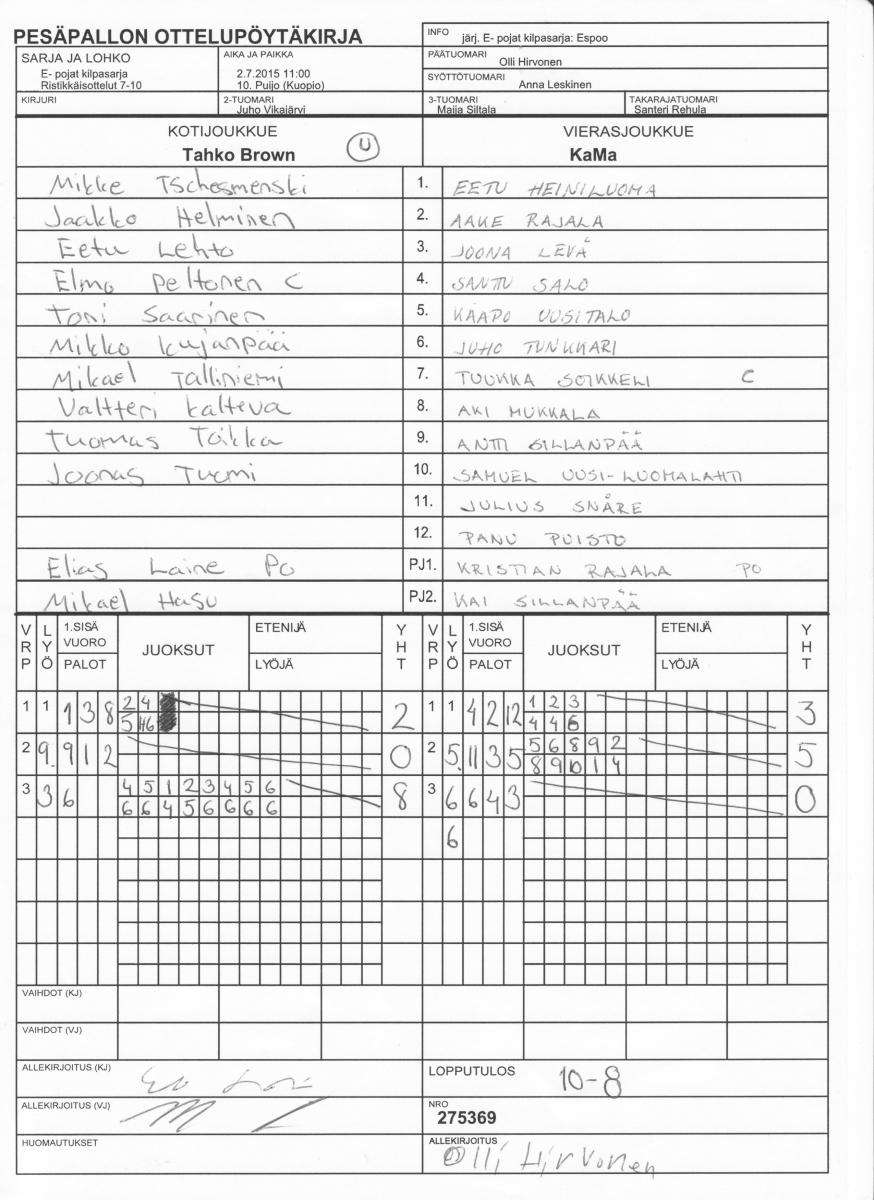 PESÄPALLON OTTELUPÖYTÄKIRJA
INFO järj. E- pojat kilpasarja: Espoo
SARJA JA LOHKO
E- pojat kilpasarja
Ristikkäisottelut 7-10
AIKA JA PAIKKA
2.7.2015 11:00
10. Puijo (Kuopio)
PÄÄTUOMARI
Olli Hirvonen
SYÖTTÖTUOMARI
Anna Leskinen
KIRJURI
2-TUOMARI
Juho Vikajärvi
3-TUOMARI
Maija Siltala
TAKARAJATUOMARI
Santeri Rehula
KOTIJOUKKUE
Tahko Brown U
VIERASJOUKKUE
KaMa
Mikke Tschesmenski 1. EETU HEINILUOMA
Jaakko Helminen 2. AAKE RAJALA
Eetu Lehto 3. JOONA LEVÄ
Elmo Peltonen C 4. SANTTU SALO
Toni Saarinen 5. KAAPO UUSITALO
Mikko Kujanpää 6. JUHO TUNKKARI
Mikael Talliniemi 7. TUUKKA SOIKKELI C
Valtteri Kalteva 8. AKI MUKKALA
Tuomas Toikka 9. ANTTI SILLANPÄÄ
Joonas Tuomi 10. SAMUEL UUSI-LUOMALAHTI
11. JULIUS SNÅRE
12. PANU PUISTO
Elias Laine PO PJ1. KRISTIAN RAJALA PO
Mikael Hasu PJ2. KAI SILLANPÄÄ
VRP LYÖ 1.SISÄ VUORO PALOT JUOKSUT ETENIJÄ LYÖJÄ YHT VRP LYÖ 1.SISÄ VUORO PALOT JUOKSUT ETENIJÄ LYÖJÄ YHT
1 1 1 3 8 2 4 2 1 1 4 2 12 1 2 3 3
5 6 4 4 6
2 9. 9 1 2 0 2 5. 11 3 5 5 6 8 9 2 5
8 9 10 1 4
3 3 6 4 5 1 2 3 4 5 6 8 3 6 6 4 3 0
6 6 4 5 6 6 6 6
6
VAIHDOT (KJ)
VAIHDOT (VJ)
ALLEKIRJOITUS (KJ)
LOPPUTULOS 10-8
ALLEKIRJOITUS (VJ)
NRO
275369
HUOMAUTUKSET
ALLEKIRJOITUS
Olli Hirvonen